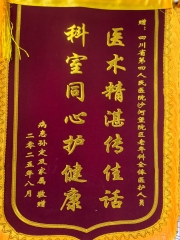 赠：四川省第四人民医院沙河堡院区老年科全体医护人员
医术精湛传佳话
科室同心护健康
病患孙文及家属 敬赠
二零二五年八月